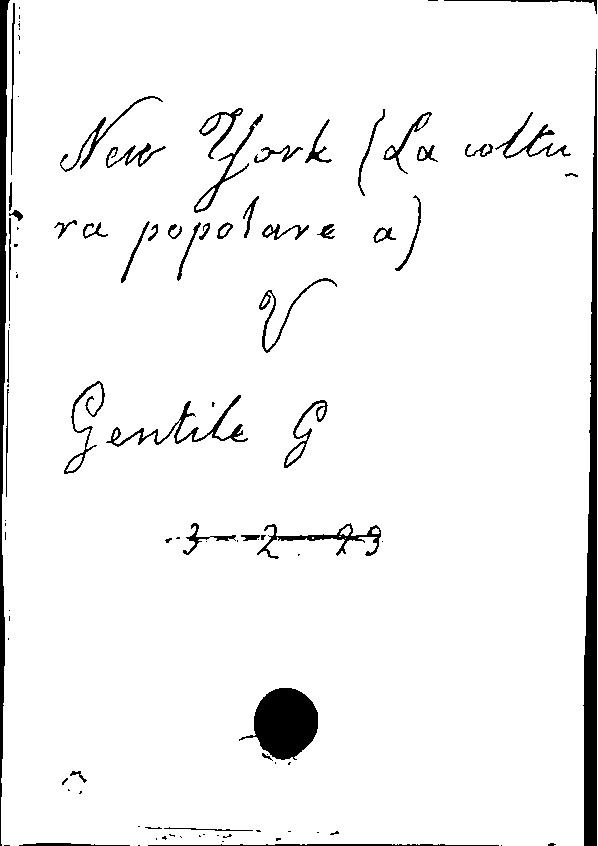 New York (La coltu-
ra popolare a)
V
Gentile G
3 2 23